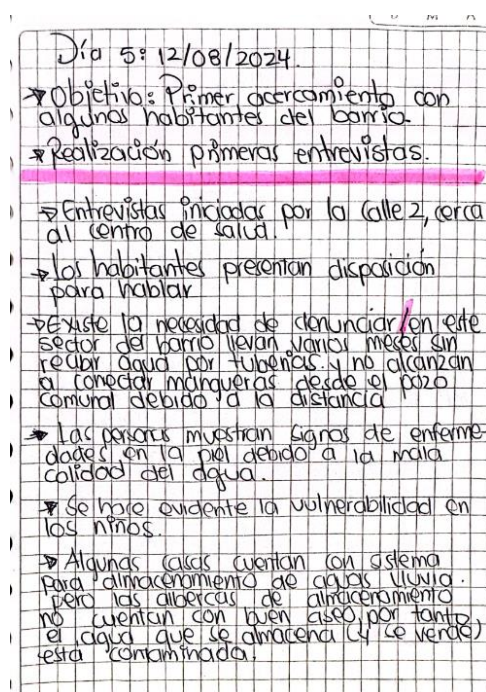 Día 5: 12/08/2024.
→ Objetivo: Primer acercamiento con
algunos habitantes del barrio.
→ Realización primeras entrevistas.
→ Entrevistas iniciadas por la calle 2, cerca
al centro de salud.
→ los habitantes presentan disposición
para hablar
→ Existe la necesidad de denunciar/en este
sector del barrio llevan varios meses sin
recibir agua por tuberías. y no alcanzan
a conectar mangueras desde el pozo
comunal debido a la distancia
→ Las personas muestran signos de enferme-
dades en la piel debido a la mala
calidad del agua.
→ Se hace evidente la vulnerabilidad en
los niños.
→ Algunas casas cuentan con sistema
para almacenamiento de aguas lluvia.
pero las albercas de almacenamiento
no cuentan con buen aseo, por tanto
el agua que se almacena (y se vende)
está contaminada.